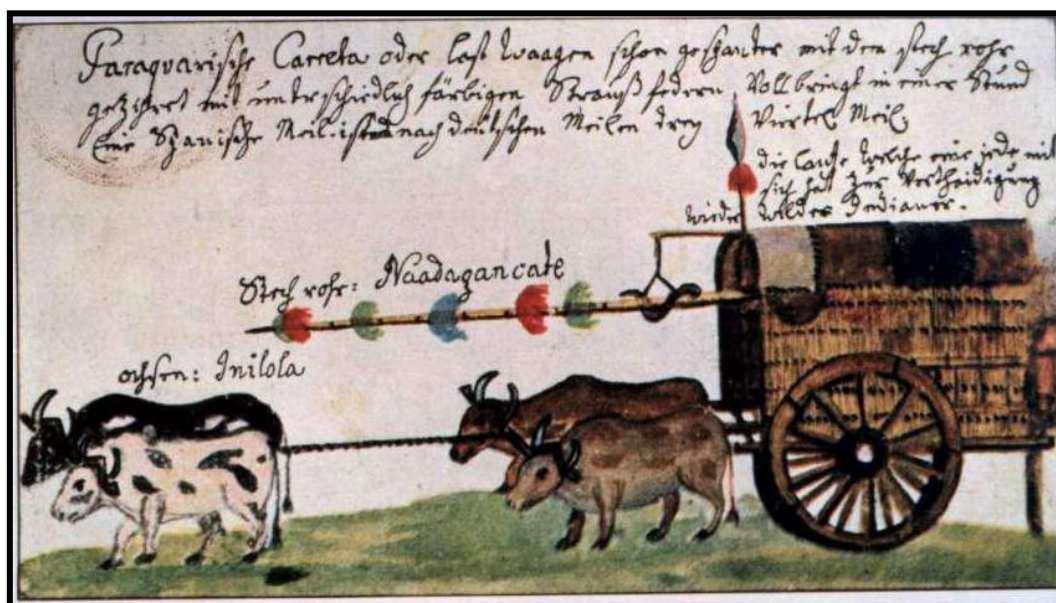 Paraquarische Carreta oder last waagen schon gespanter mit dem stech rohr
gezihret mit unterschiedlich färbigen Straußfedern Vollbringt in einer Stund
Eine Spanische Meil. ist nach deütschen Meilen drey Viertel Meil.
die lantze welche eine jede mit
sich hat zur Vertheidigung
wieder wilder Indianer.
Stech rohr: Naadagancate
ochsen: Inilola